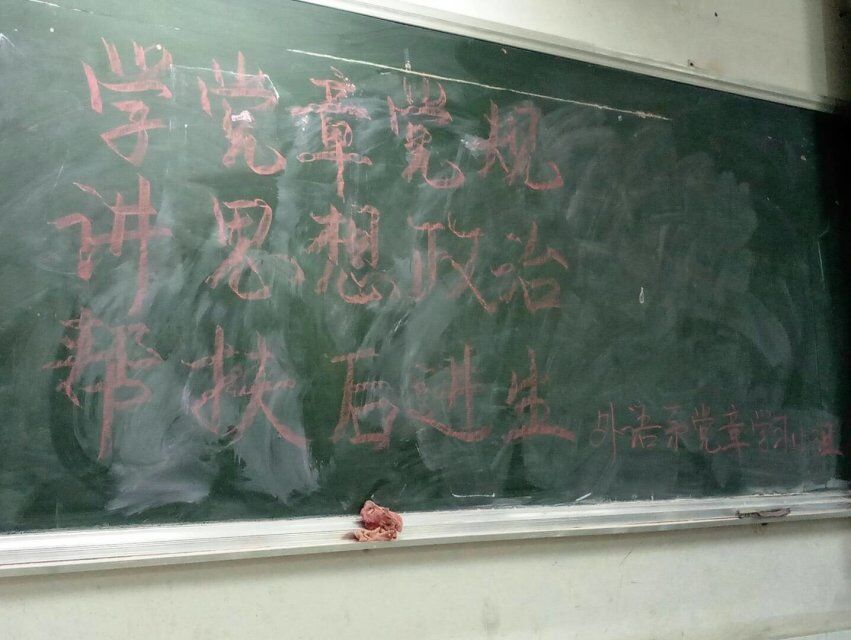 学党章党规
讲思想政治
帮扶后进生
外语系党章学习小组